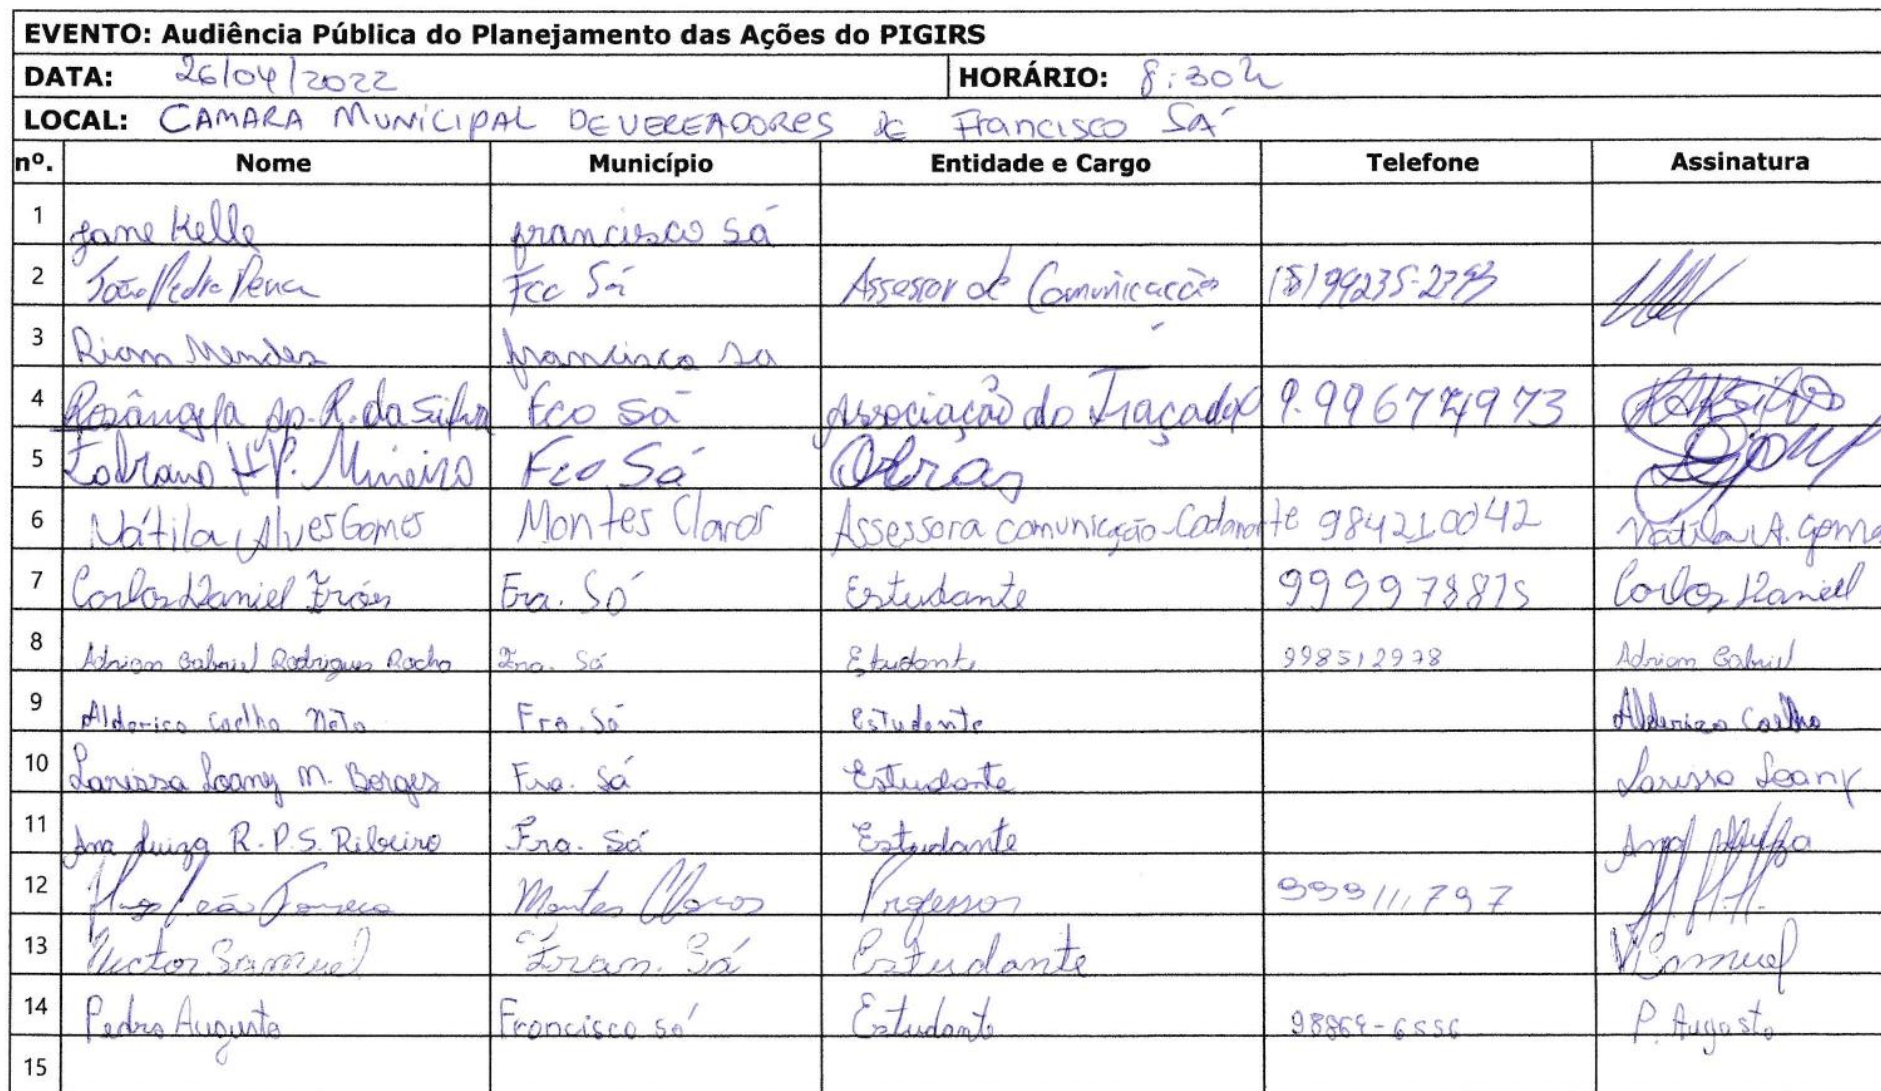 EVENTO: Audiência Pública do Planejamento das Ações do PIGIRS
DATA: 26/04/2022 HORÁRIO: 8:30h
LOCAL: CAMARA MUNICIPAL DE VEREADORES DE Francisco SÁ
nº. Nome Município Entidade e Cargo Telefone Assinatura
1 Jane Kelle francisco Sá
2 João Pedro Pena Fco Sá Assessor de Comunicação
3 Rian Mendes francisco sa
4 Rosângela Ap. R. da Silva Fco Sá Associação do Traçadal
5 Fabiano Mineiro Fco Sá Obras
6 Nátila Alves Gomes Montes Claros Assessora comunicação Codanorte 984210042 Nátila A. Gomes
7 Carlos Daniel Fróes Fra. Sá Estudante 999978875 Carlos Daniel
8 Adrian Gabriel Rodrigues Rocha Fra. Sá Etudante 998512978 Adrian Gabriel
9 Alderico Coelho Neto Fra. Sá Estudante Alderico Coelho
10 Larissa Loany M. Borges Fra. Sá Estudante Larissa Loany
11 Ana Luiza R.P.S. Ribeiro Fra. Sá Estudante Ana Luiza
12 Hugo Leão Fonseca Montes Claros Professor
13 Victor Samuel Fran. Sá Estudante V. Samuel
14 Pedro Augusto Francisco Sá Estudante P. Augusto
15